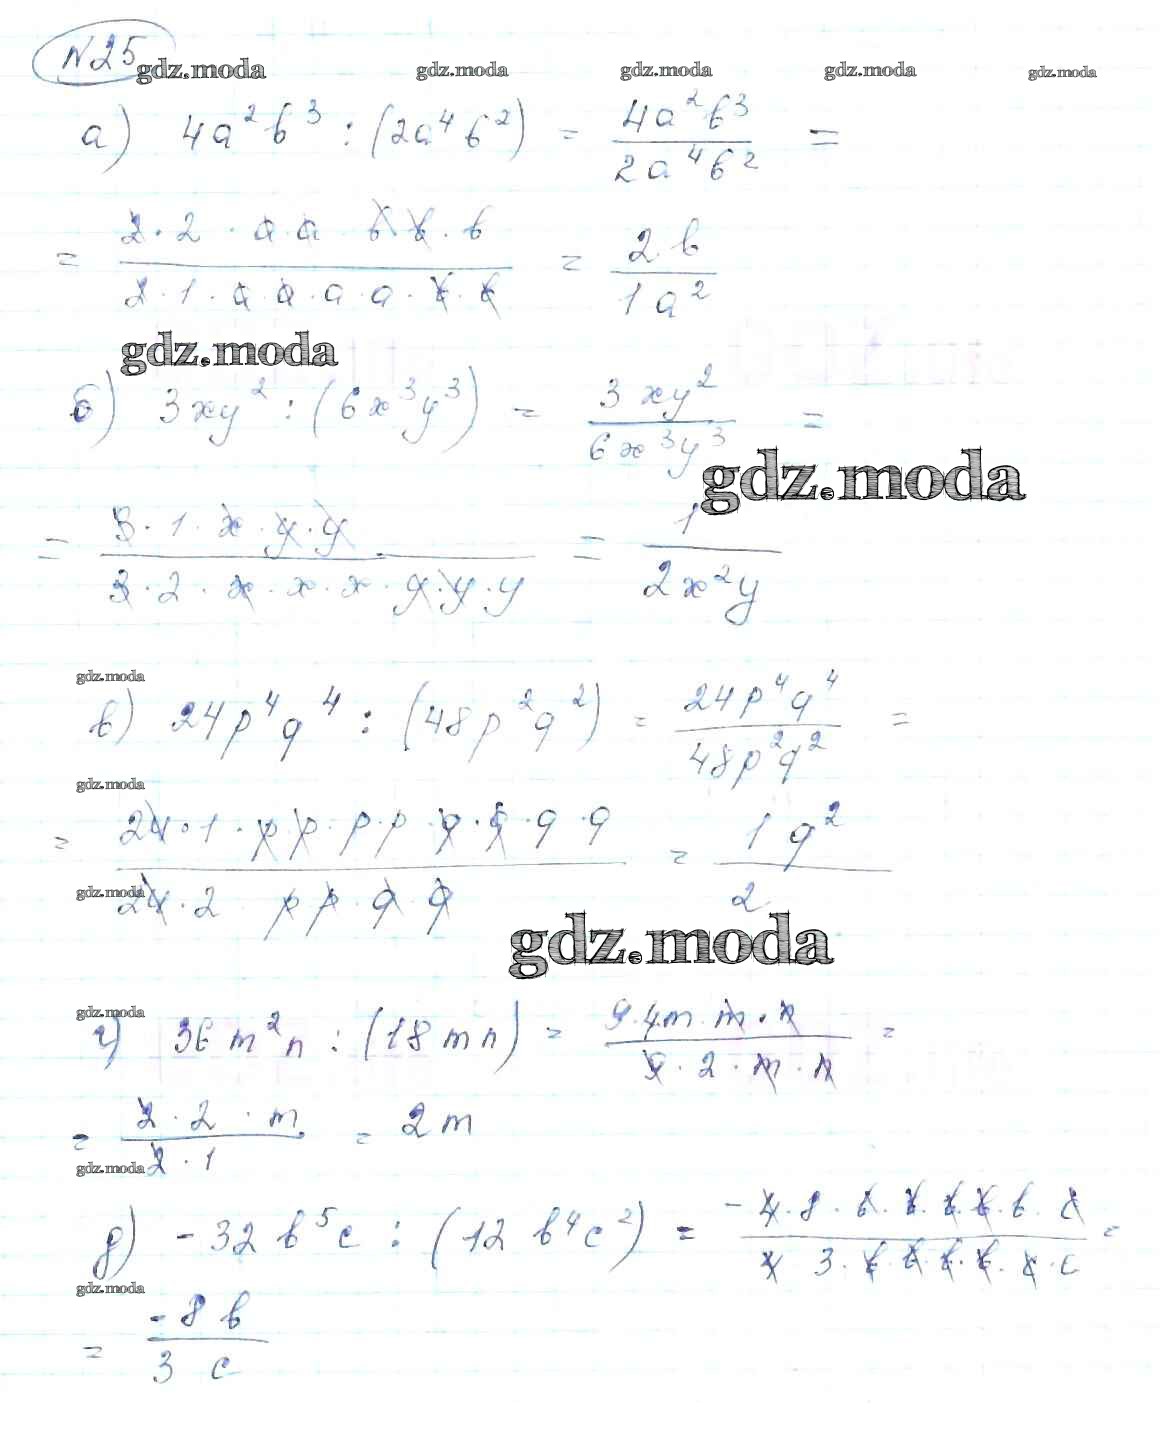 N25 gdz.moda gdz.moda gdz.moda gdz.moda gdz.moda
а) 4a²b³ : (2a⁴b²) = 4a²b³ / 2a⁴b² =
= 2·2·a·a b b·b / 2·1·a·a·a·a·b·b = 2·b / 1a²
gdz.moda
б) 3xy² : (6x³y³) = 3xy² / 6x³y³ =
gdz.moda
= 3·1·x·y·y / 3·2·x·x·x·y·y·y = 1 / 2x²y
gdz.moda
в) 24p⁴q⁴ : (48p²q²) = 24p⁴q⁴ / 48p²q² =
gdz.moda
= 24·1·p p·p·p·q·q·q·q / 24·2 p p·q·q = 1q² / 2
gdz.moda
gdz.moda
gdz.moda
г) 36m²n : (18mn) = 9·4m·m·n / 9·2·m·n =
= 2·2·m / 2·1 = 2m
gdz.moda
д) -32b⁵c : (12b⁴c²) = -4·8·b·b·b·b·b·c / 4 3·b·b·b·b·c·c =
gdz.moda
= -8b / 3c